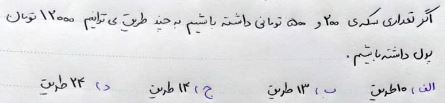 اگر تعدادی سکه‌ی ۲۰۰ و ۵۰۰ تومانی داشته باشیم به چند طریق می توانیم ۱۲۰۰۰ تومان
پول داشته باشیم.
الف) ۱۰ طریق ب) ۱۳ طریق ج) ۱۴ طریق د) ۲۴ طریق